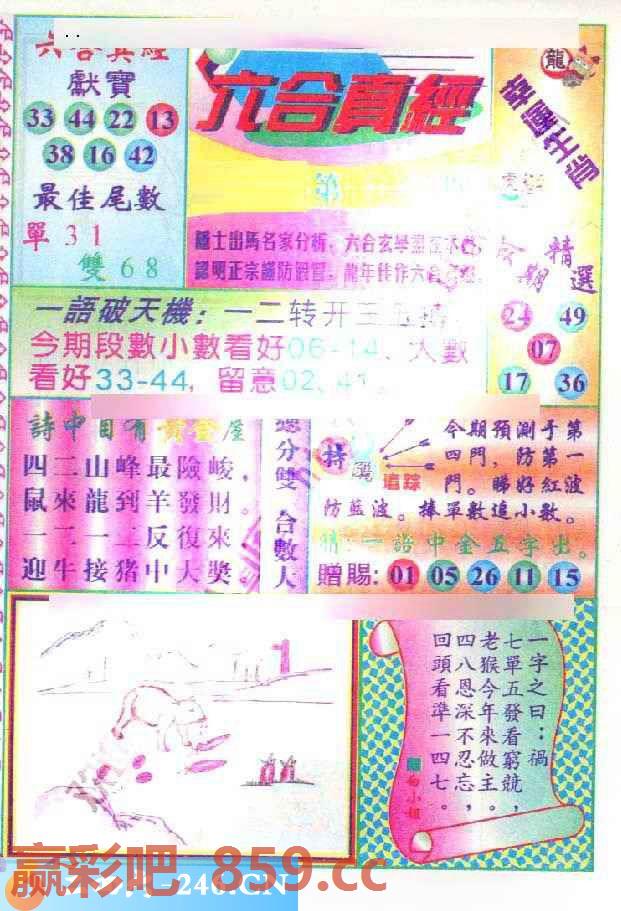 六合真經
獻寶
33 44 22 13
38 16 42
最佳尾數
單 3 1
雙 6 8
六合真經
第
龍
隱士出馬名家分析，六合玄學
認明正宗謹防假冒，龍年佳作六合
期
精選
24 49
07
17 36
一語破天機：一二转开三五
今期段數小數看好06-14、大數
看好33-44，留意02、41。
詩中自有黃金屋
四二山峰最險峻，
鼠來龍到羊發財。
一二一二反復來
迎牛接猪中大獎。
總分雙 合數大
特
追踪
今期預測于第
四門，防第一
門。睇好紅波
防藍波。捧單數追小數。
一語中金五字出。
贈賜：01 05 26 11 15
1
一字之曰：禍
七單五發看窮競，
老猴今年來做主。
四八恩深不忍忘，
回頭看準一四七。
白小姐
赢彩吧 859.cc
-246.CN